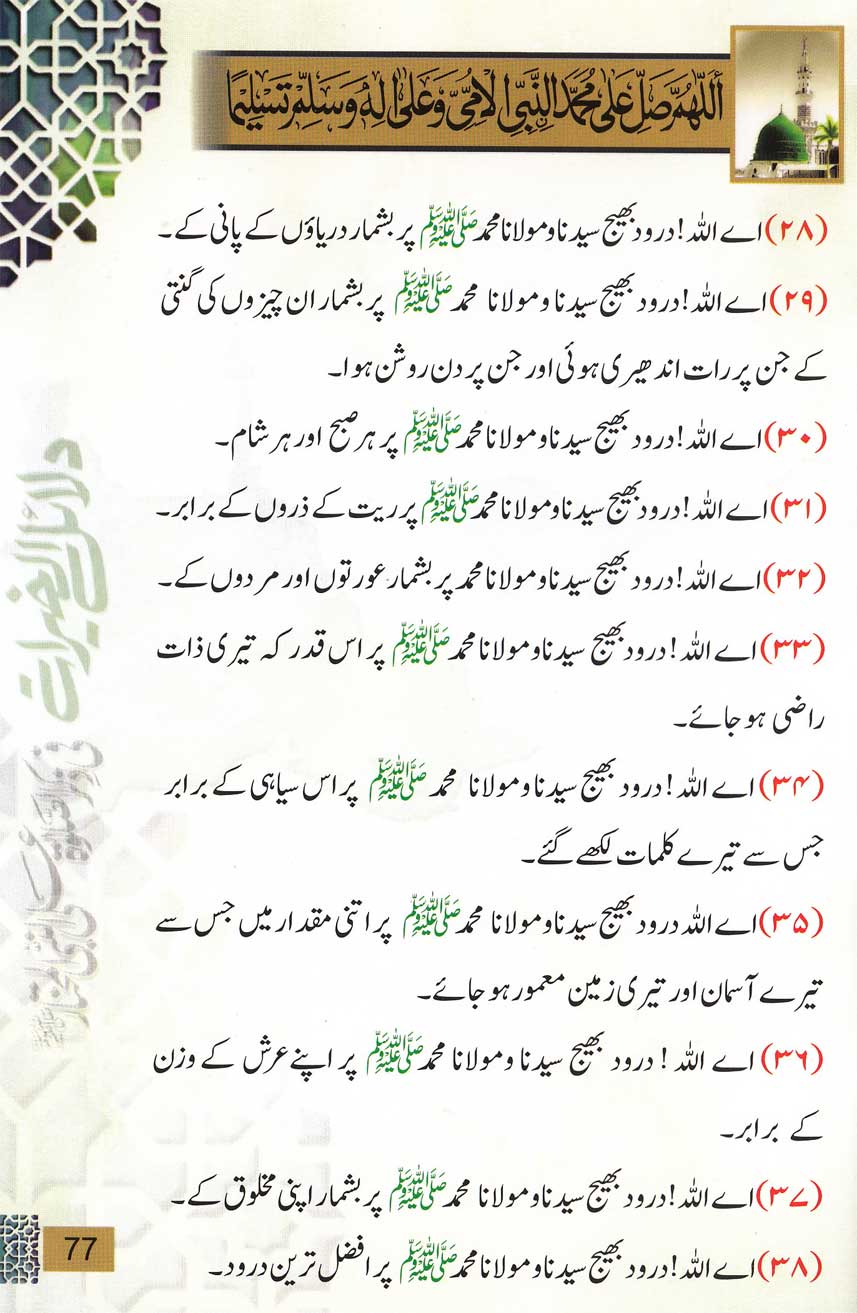 اَللّٰهُمَّ صَلِّ عَلٰى مُحَمَّدِ النَّبِىِّ الْاُمِّىِّ وَعَلٰى اٰلِهٖ وَسَلِّمْ تَسْلِيْمًا
(۲۸) اے اللہ! درود بھیج سیدنا و مولانا محمد ﷺ پر بشمار دریاؤں کے پانی کے۔
(۲۹) اے اللہ! درود بھیج سیدنا و مولانا محمد ﷺ پر بشمار ان چیزوں کی گنتی
کے جن پر رات اندھیری ہوئی اور جن پر دن روشن ہوا۔
(۳۰) اے اللہ! درود بھیج سیدنا و مولانا محمد ﷺ پر ہر صبح اور ہر شام۔
(۳۱) اے اللہ! درود بھیج سیدنا و مولانا محمد ﷺ پر ریت کے ذروں کے برابر۔
(۳۲) اے اللہ! درود بھیج سیدنا و مولانا محمد پر بشمار عورتوں اور مردوں کے۔
(۳۳) اے اللہ! درود بھیج سیدنا و مولانا محمد ﷺ پر اس قدر کہ تیری ذات
راضی ہو جائے۔
(۳۴) اے اللہ! درود بھیج سیدنا و مولانا محمد ﷺ پر اس سیاہی کے برابر
جس سے تیرے کلمات لکھے گئے۔
(۳۵) اے اللہ درود بھیج سیدنا و مولانا محمد ﷺ پر اتنی مقدار میں جس سے
تیرے آسمان اور تیری زمین معمور ہو جائے۔
(۳۶) اے اللہ! درود بھیج سیدنا و مولانا محمد ﷺ پر اپنے عرش کے وزن
کے برابر۔
(۳۷) اے اللہ! درود بھیج سیدنا و مولانا محمد ﷺ پر بشمار اپنی مخلوق کے۔
(۳۸) اے اللہ! درود بھیج سیدنا و مولانا محمد ﷺ پر افضل ترین درود۔
دلائل الخیرات
77